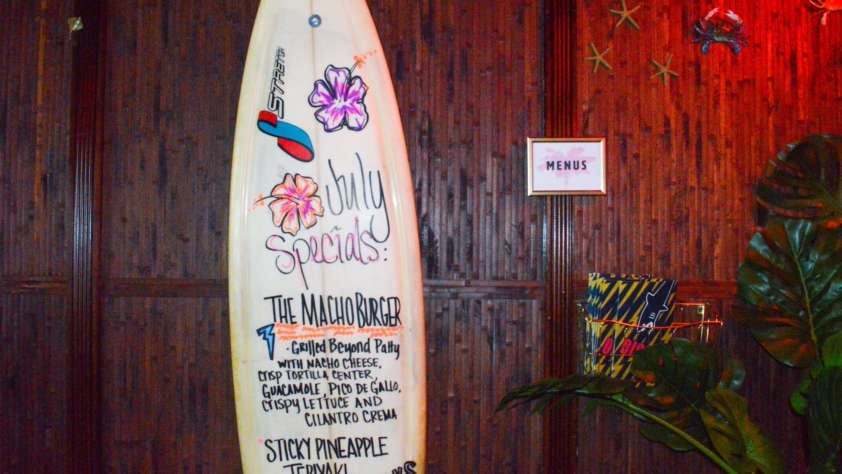 STRETCH
July
Specials:
MENUS
THE MACHO BURGER
· Grilled Beyond Patty
WITH NACHO CHEESE,
CRISP TORTILLA CENTER,
GUACAMOLE, PICO DE GALLO,
CRISPY LETTUCE AND
CILANTRO CREMA
STICKY PINEAPPLE
TERIYAKI